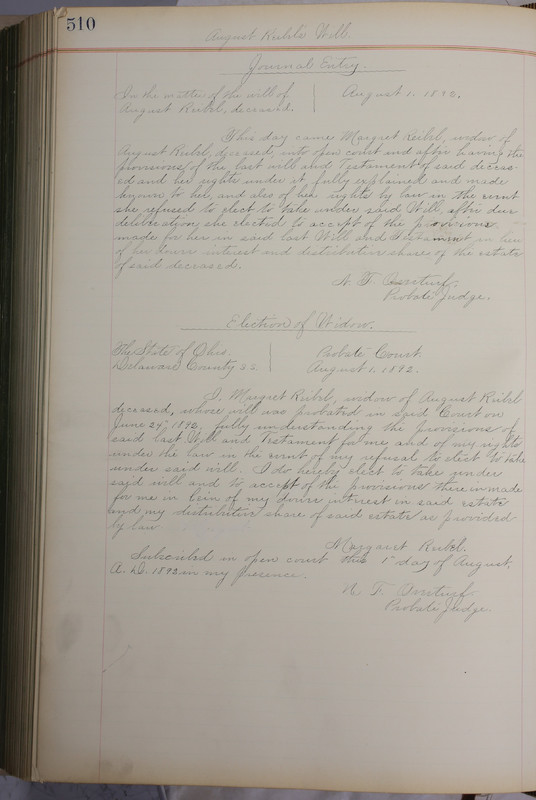 510
August Ruhl's Will.
Journal Entry.
In the matter of the will of
August Ruhl, deceased.
August 1, 1892.
This day came Margret Ruhl, widow of
August Ruhl, deceased, into open court and after having the
provisions of the last will and Testament of said deceas-
ed and her rights under it fully explained and made
known to her, and also of her rights by law in the event
she refused to elect to take under said Will, after due
deliberation, she elected to accept of the provisions
made for her in said last Will and Testament in lieu
of her dower interest and distributive share of the estate
of said deceased.
N. F. Overturf.
Probate Judge.
Election of Widow.
The State of Ohio,
Delaware County S.S.
Probate Court.
August 1, 1892.
I, Margret Ruhl, widow of August Ruhl
deceased, whose will was probated in said Court on
June 24, 1892, fully understanding the provisions of
said last Will and Testament for me and of my rights
under the law in the event of my refusal to elect to take
under said will. I do hereby elect to take under
said will and to accept of the provisions therein made
for me in lieu of my dower interest in said estate
and my distributive share of said estate as provided
by law.
Margaret Ruhl.
Subscribed in open court this 1st day of August,
A. D. 1892 in my presence.
N. F. Overturf
Probate Judge.